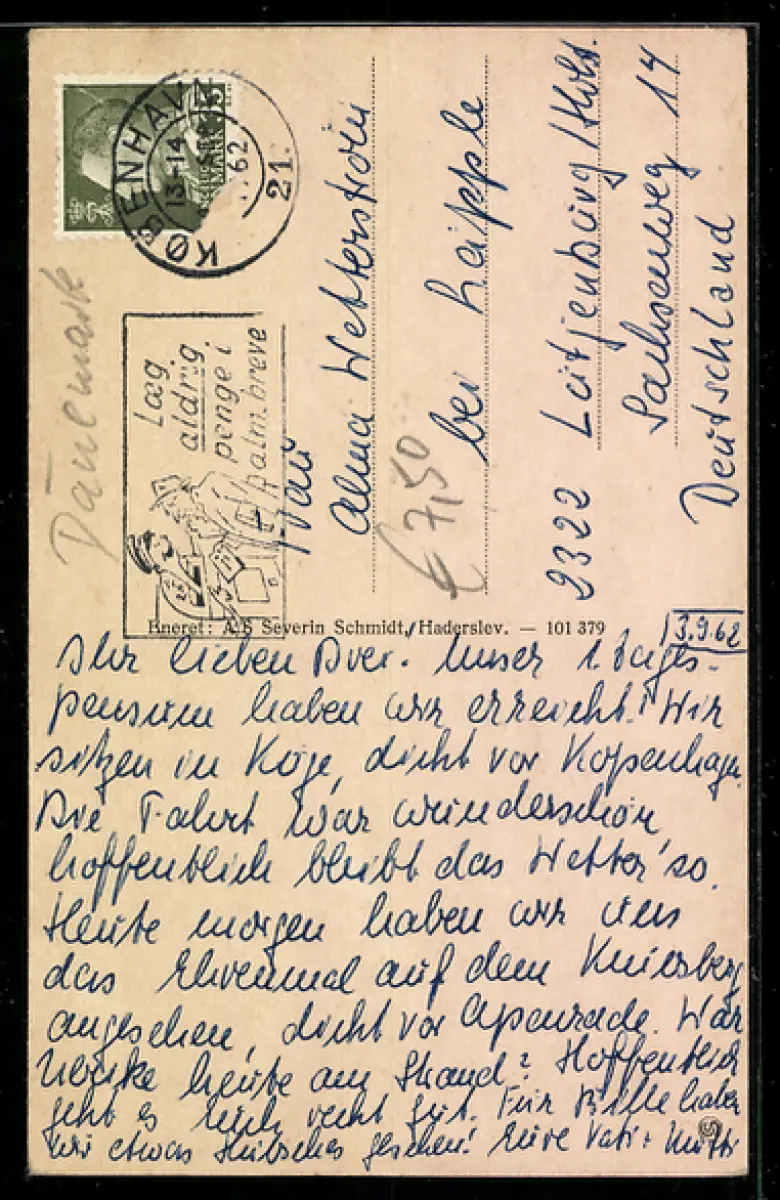 Dänemark
KØBENHAVN
13-14
62
21.
Læg
aldrig
penge i
alm. breve
Frau
Alma Wetterström
bei Läpple
2322 Lütjenburg/Holst.
Sachsenweg 14
Deutschland
€ 7,50
Eneret: A/S Severin Schmidt, Haderslev. — 101 379
13.9.62
Ihr lieben Drei. Unser 1. Tages-
pensum haben wir erreicht! Wir
sitzen in Köge, dicht vor Kopenhagen.
Die Fahrt war wunderschön
hoffentlich bleibt das Wetter so.
Heute morgen haben wir uns
das Ehrenmal auf dem Knivsberg
angesehen, dicht vor Apenrade. War
Ulrike heute am Strand? Hoffentlich
geht es Euch recht gut. Für Bille haben
wir etwas Hübsches gesehen! Eure Vati + Mutti